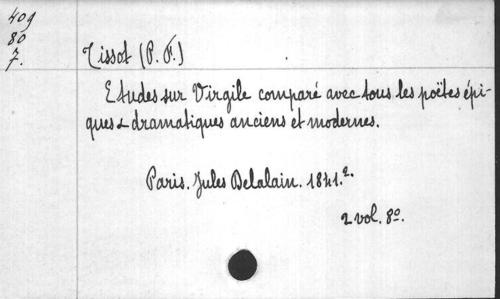 409
80
7.
Tissot (P. F.)
Etudes sur Virgile comparé avec tous les poëtes épi-
ques & dramatiques anciens et modernes.
Paris. Jules Delalain. 1841.
2 vol. 8º.